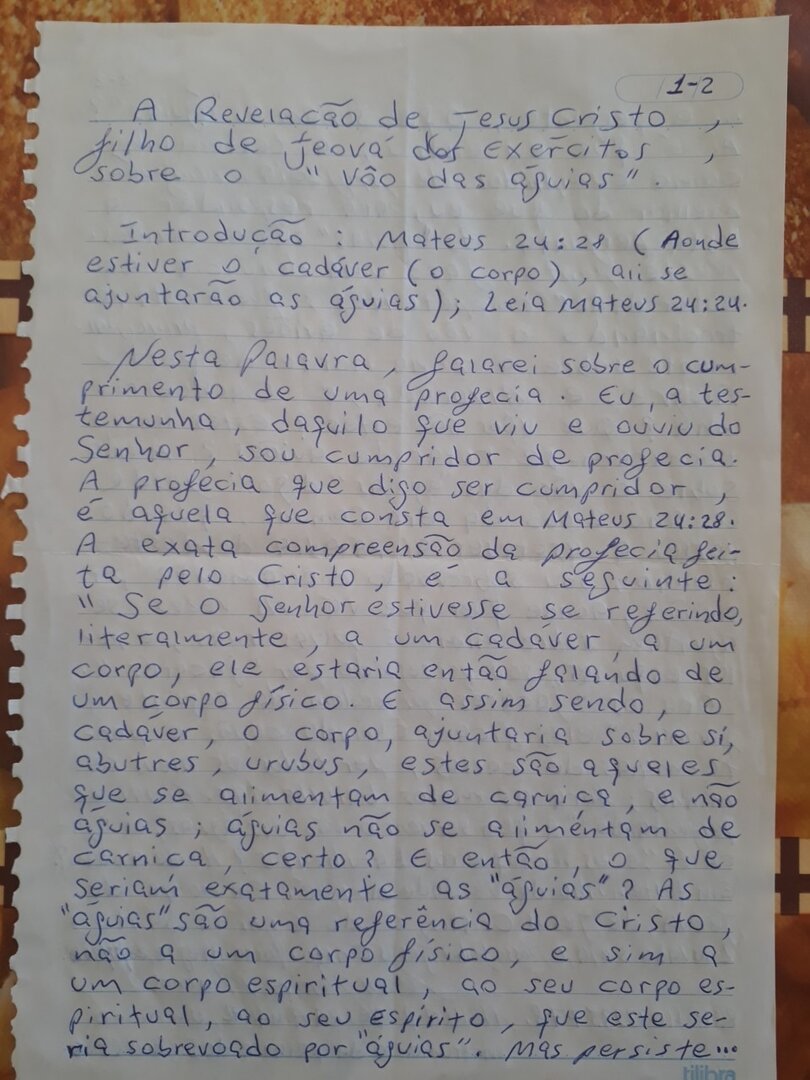 1-2
A Revelação de Jesus Cristo,
filho de Jeová dos Exércitos,
sobre o "vôo das águias".
Introdução: Mateus 24:28 (Aonde
estiver o cadáver (o corpo), ali se
ajuntarão as águias); Leia Mateus 24:24.
Nesta Palavra, falarei sobre o cum-
primento de uma profecia. Eu, a tes-
temunha, daquilo que viu e ouviu do
Senhor, sou cumpridor de profecia.
A profécia que digo ser cumpridor,
é aquela que consta em Mateus 24:28.
A exata compreensão da profecia fei-
ta pelo Cristo, é a seguinte:
"Se o Senhor estivesse se referindo,
literalmente, a um cadáver, a um
corpo, ele estaria então falando de
um corpo físico. E assim sendo, o
cadáver, o corpo, ajuntaria sobre sí,
abutres, urubus, estes são aqueles
que se alimentam de carniça, e não
águias; águias não se aliméntam de
carnica, certo? E então, o que
seriam exatamente as "águias"? As
"águias" são uma referência do Cristo,
não a um corpo físico, e sim a
um corpo espiritual, ao seu corpo es-
piritual, ao seu Espírito, que este se-
ria sobrevoado por "águias". Mas persiste...
tilibra